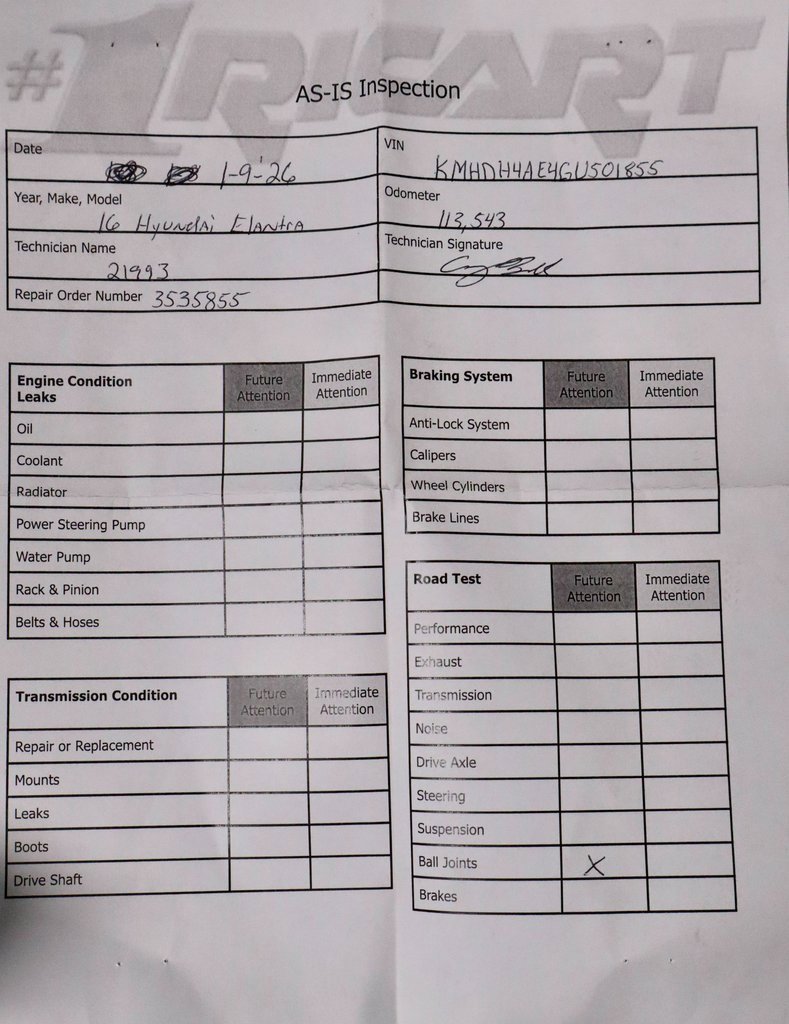 #1 RICART
AS-IS Inspection
Date 1-9-26
VIN KMHDH4AE4GU501855
Year, Make, Model 16 Hyundai Elantra
Odometer 113,543
Technician Name 21993
Technician Signature
Repair Order Number 3535855
Engine Condition Leaks Future Attention Immediate Attention
Oil
Coolant
Radiator
Power Steering Pump
Water Pump
Rack & Pinion
Belts & Hoses
Transmission Condition Future Attention Immediate Attention
Repair or Replacement
Mounts
Leaks
Boots
Drive Shaft
Braking System Future Attention Immediate Attention
Anti-Lock System
Calipers
Wheel Cylinders
Brake Lines
Road Test Future Attention Immediate Attention
Performance
Exhaust
Transmission
Noise
Drive Axle
Steering
Suspension
Ball Joints X
Brakes